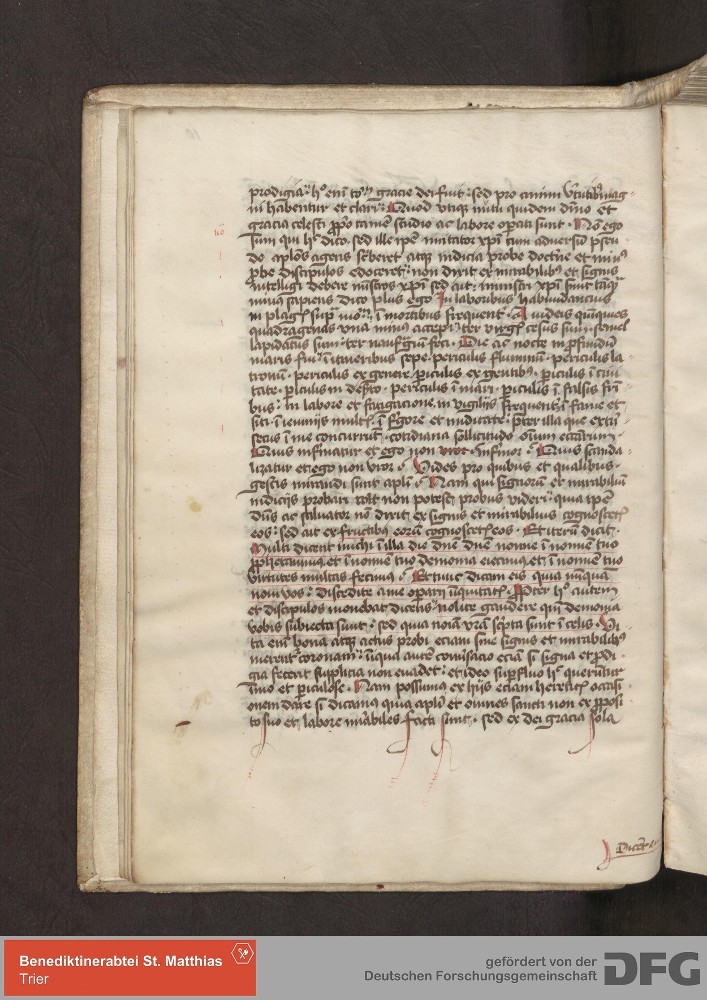 prodigia: h° eni to^m gracie dei fuit: sed pro animi v^tutib₉ mag-
ni habentur et clari: Quod vtiq₃ nutu quidem diuo et
gracia celesti ꝓpo tamē studio ac labore opati sunt· Nō ego
sum qui h° dico, sed ille ipē imitator xpi cum aduersū pseu
do aplōs agens scberet atq₃ indicia probe doctrīe et min⁹
ꝓbe discipulos edoceret: non dixit ex mirabilib₉ et signis
intelligi debere mīstros xpi sed ait: ministri xpi sunt tāq̄
minus sapiens dico plus ego In laboribus habundancius
in plagis sup^a mo^m: ī mortibus frequent^r· A iudeis quīquies
quadragenas vna minus accepi· ter virgis cesus sum· semel
lapidatus sum· ter naufᵍiū feci· Die ac nocte in ꝓfundū
maris fui· ī itineribus sepe· periculis fluminū· periculis la-
tronū· periculis ex genere, ꝑiculis ex gentib₉· ꝑiculis ī ciui
tate· ꝑiculis in deserto· periculis ī mari· ꝑiculis ī falsis frī-
bus: In labore et fatigacione in vigilijs frequent^r: ī fame et
siti· ī ieiunijs mult^s, ī frigore et nuditate· ꝑter illa que extī-
secus ī me concurrūt· cotidiana sollicitudo oīum eccārum·
Quis infirmatur et ego non vror· infirmor· Quis scanda-
lizatur et ego non vror· Vides pro quibus et qualibus·
gestis mirandi sunt apli· Nam qui signorum et mirabiliū
indicijs probari valt non potest probus videri: quia ipē
dūs ac saluator nō dixit ex signis et mirabilius cognoscetˢ
eos: sed ait ex fructibus eorū cognoscetˢ eos· Et iterū dicit·
Multi dicent michi ī illa die dnē dnē nonne ī nomīe tuo
ꝓphetauim₉, et ī nomīe tuo demonia eiecim₉, et ī nomīe tuo
virtutes multas fecim₉· Et tūc dicam eis quia nūquā
noui vos: discedite a me oparij īiquitatis· Propter h° autem
et discipulos monebat dicens: nolite gaudere quū demonia
vobis subiecta sunt: sed quia noīa vrā scpta sunt ī celis· Vi
ta eni bona atq₃ actus probi eciam sine signis et mirabilib₉
merent^r coronam: iniqua autē conuersacio eciā si signa et ꝓdi-
gia fecerit suplicia non euadet: et ideo supfluo h° queruntur
īmo et periculose· Nam possumus ex hijs eciam heretiᶜ occasi-
onem dare si dicamus quia apli et omnes sancti non ex ꝓposi
to suo et labore mirabiles facti sunt· sed ex dei gracia sola
Benediktinerabtei St. Matthias
Trier
gefördert von der
Deutschen Forschungsgemeinschaft
DFG